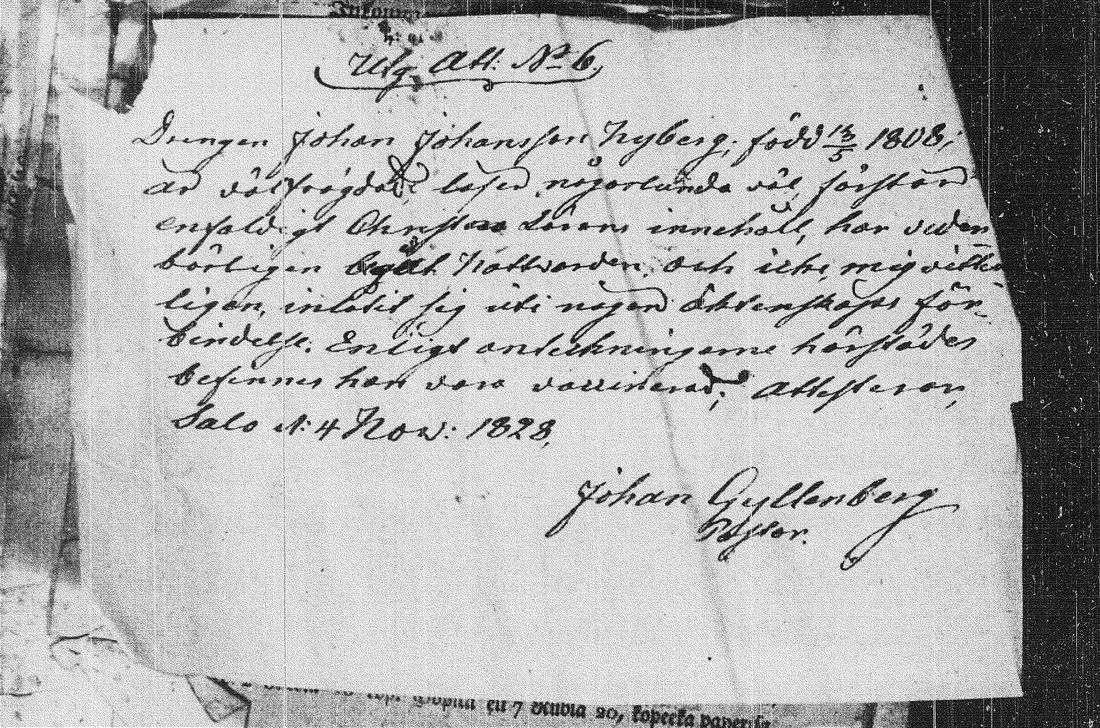 Utg. Att: No 6.
Drengen Johan Johansson Nyberg; född 13/5 1808;
är välfrägdad, läser någorlunda väl, förstår
enfaldigt Christna Lärans innehåll, har veder
börligen begått Nattvarden, och icke, mig vitter
ligen, inlåtit sig uti någon Äktenskaps för-
bindelse. Enligt anteckningarne härstädes
befinnes han vara vaccinerad; Attesterar,
Salo d: 4 Nov: 1828,
Johan Gyllenberg
Pastor.
en 7 Rubla 20, kopecka